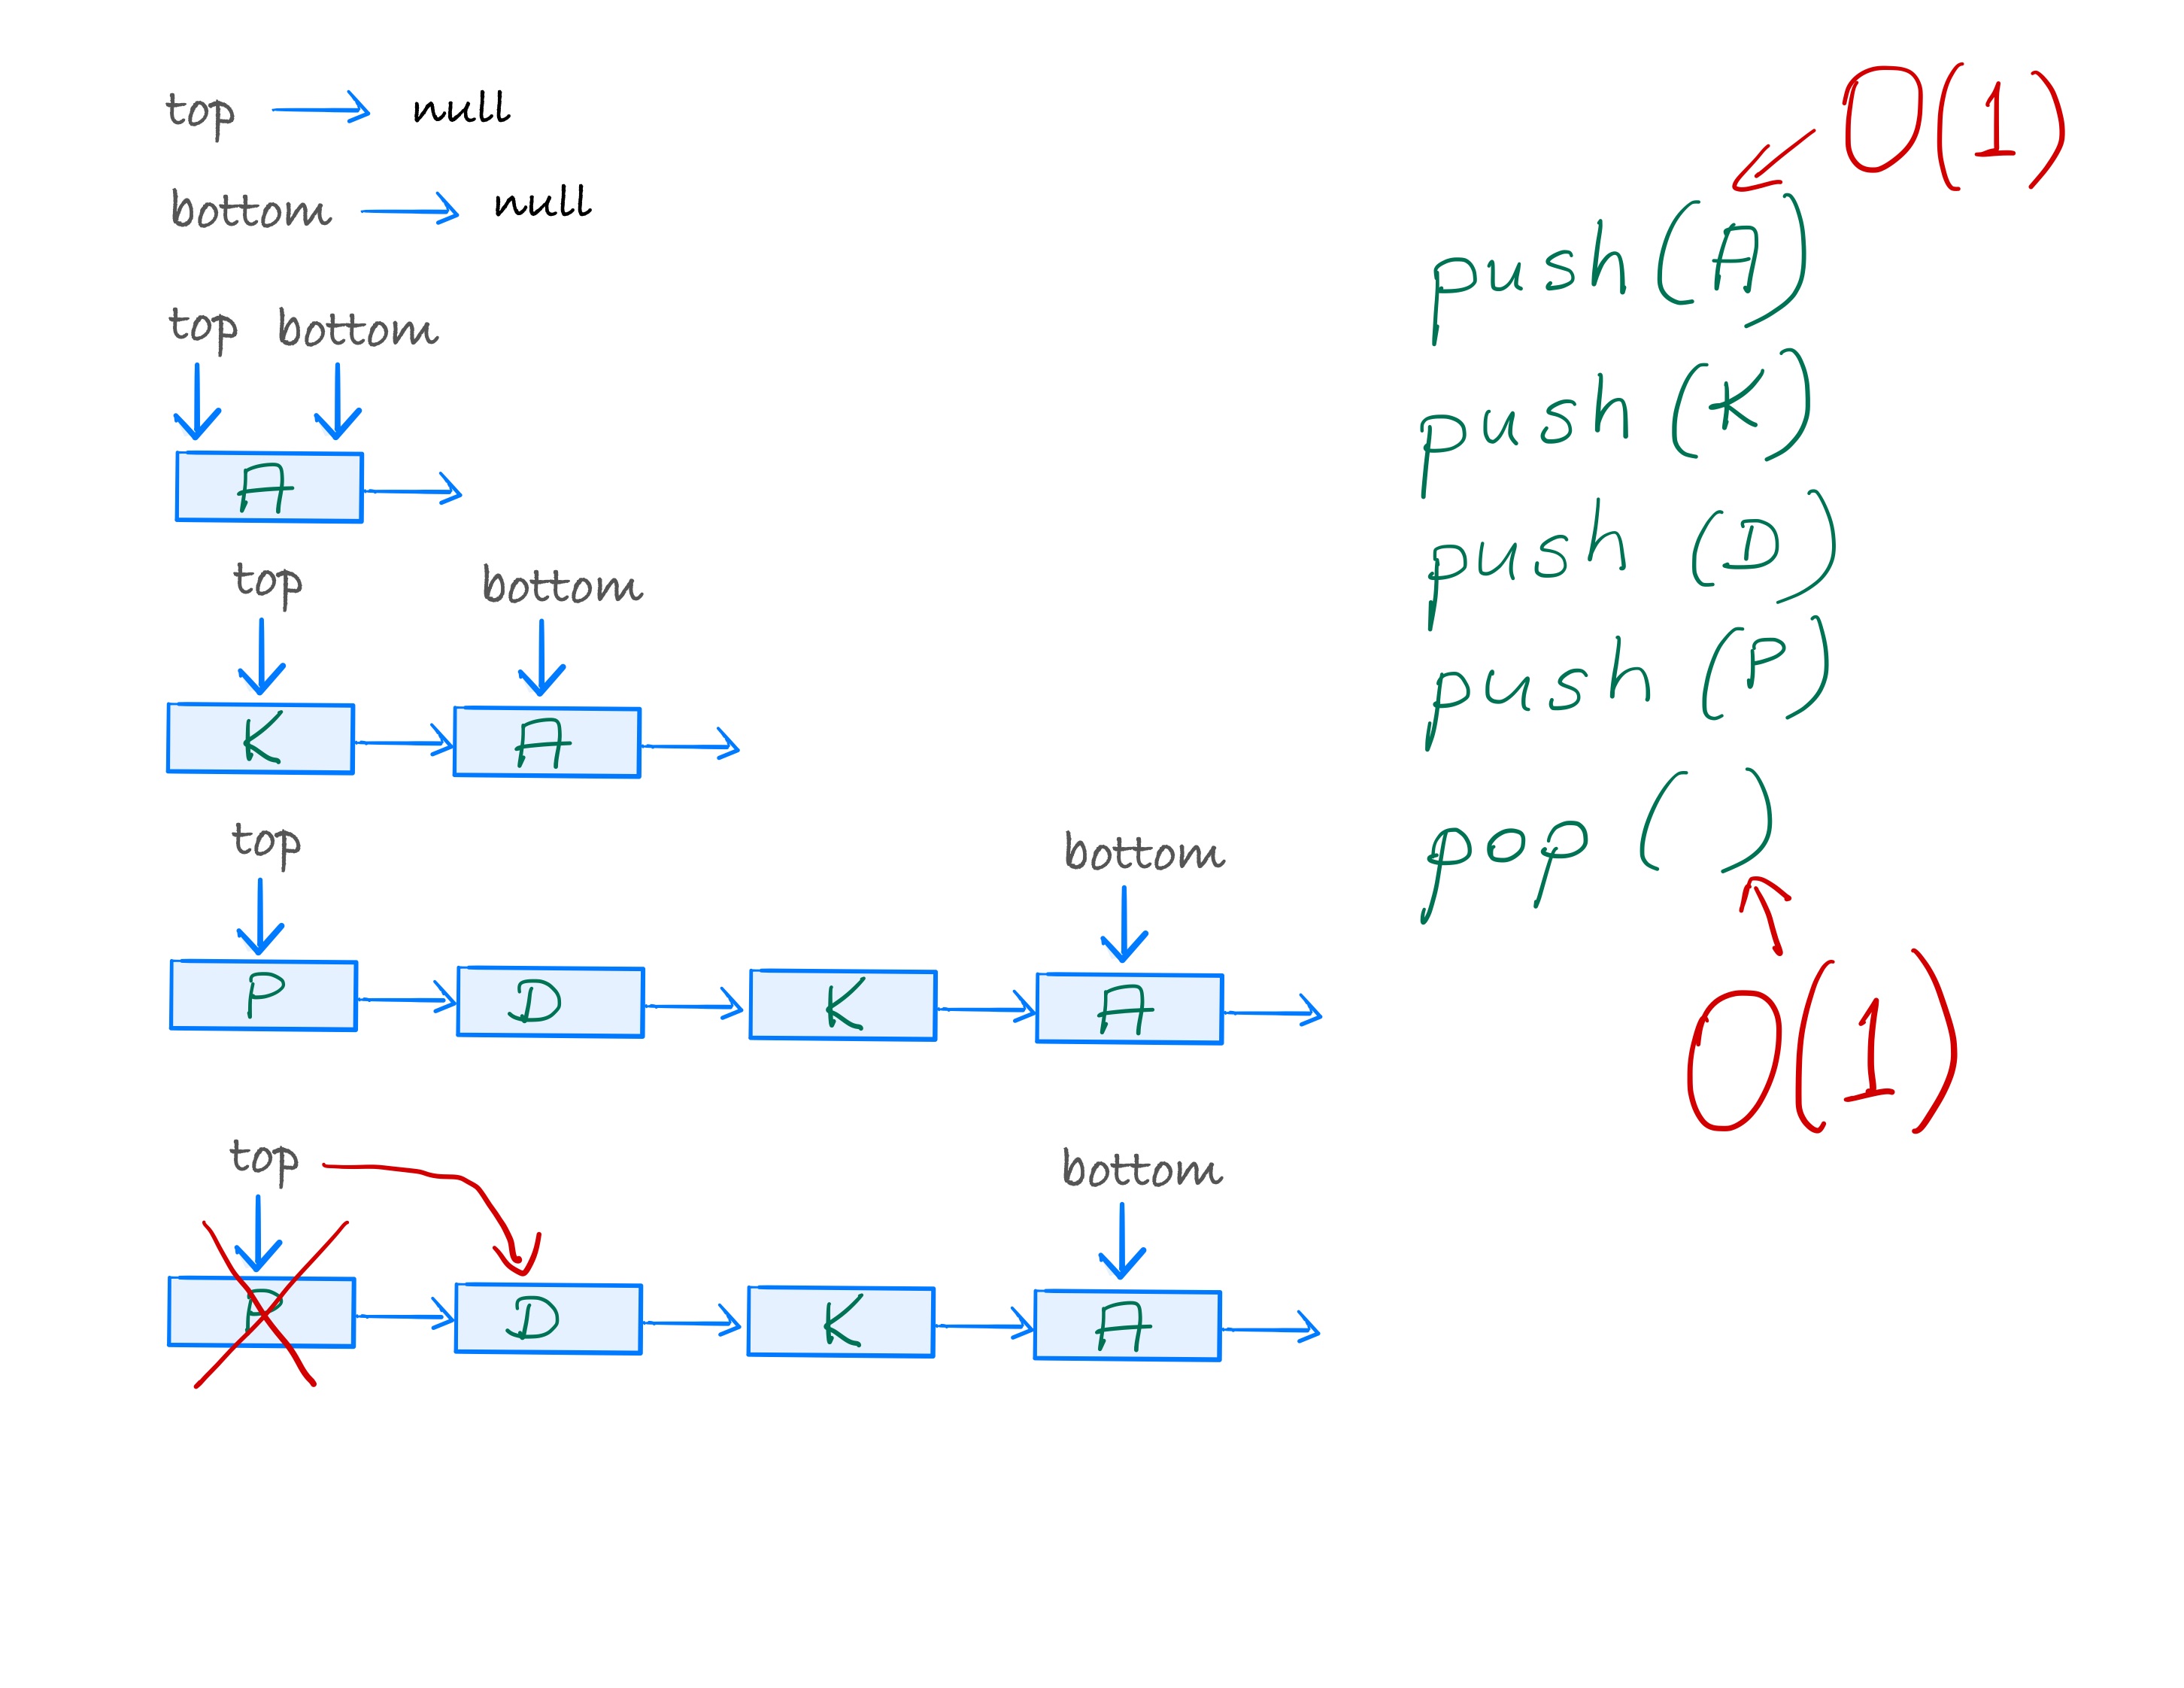 top null
bottom null
top bottom
A
top bottom
K A
top bottom
P D K A
top bottom
P D K A
O(1)
push(A)
push(K)
push(D)
push(P)
pop( )
O(1)